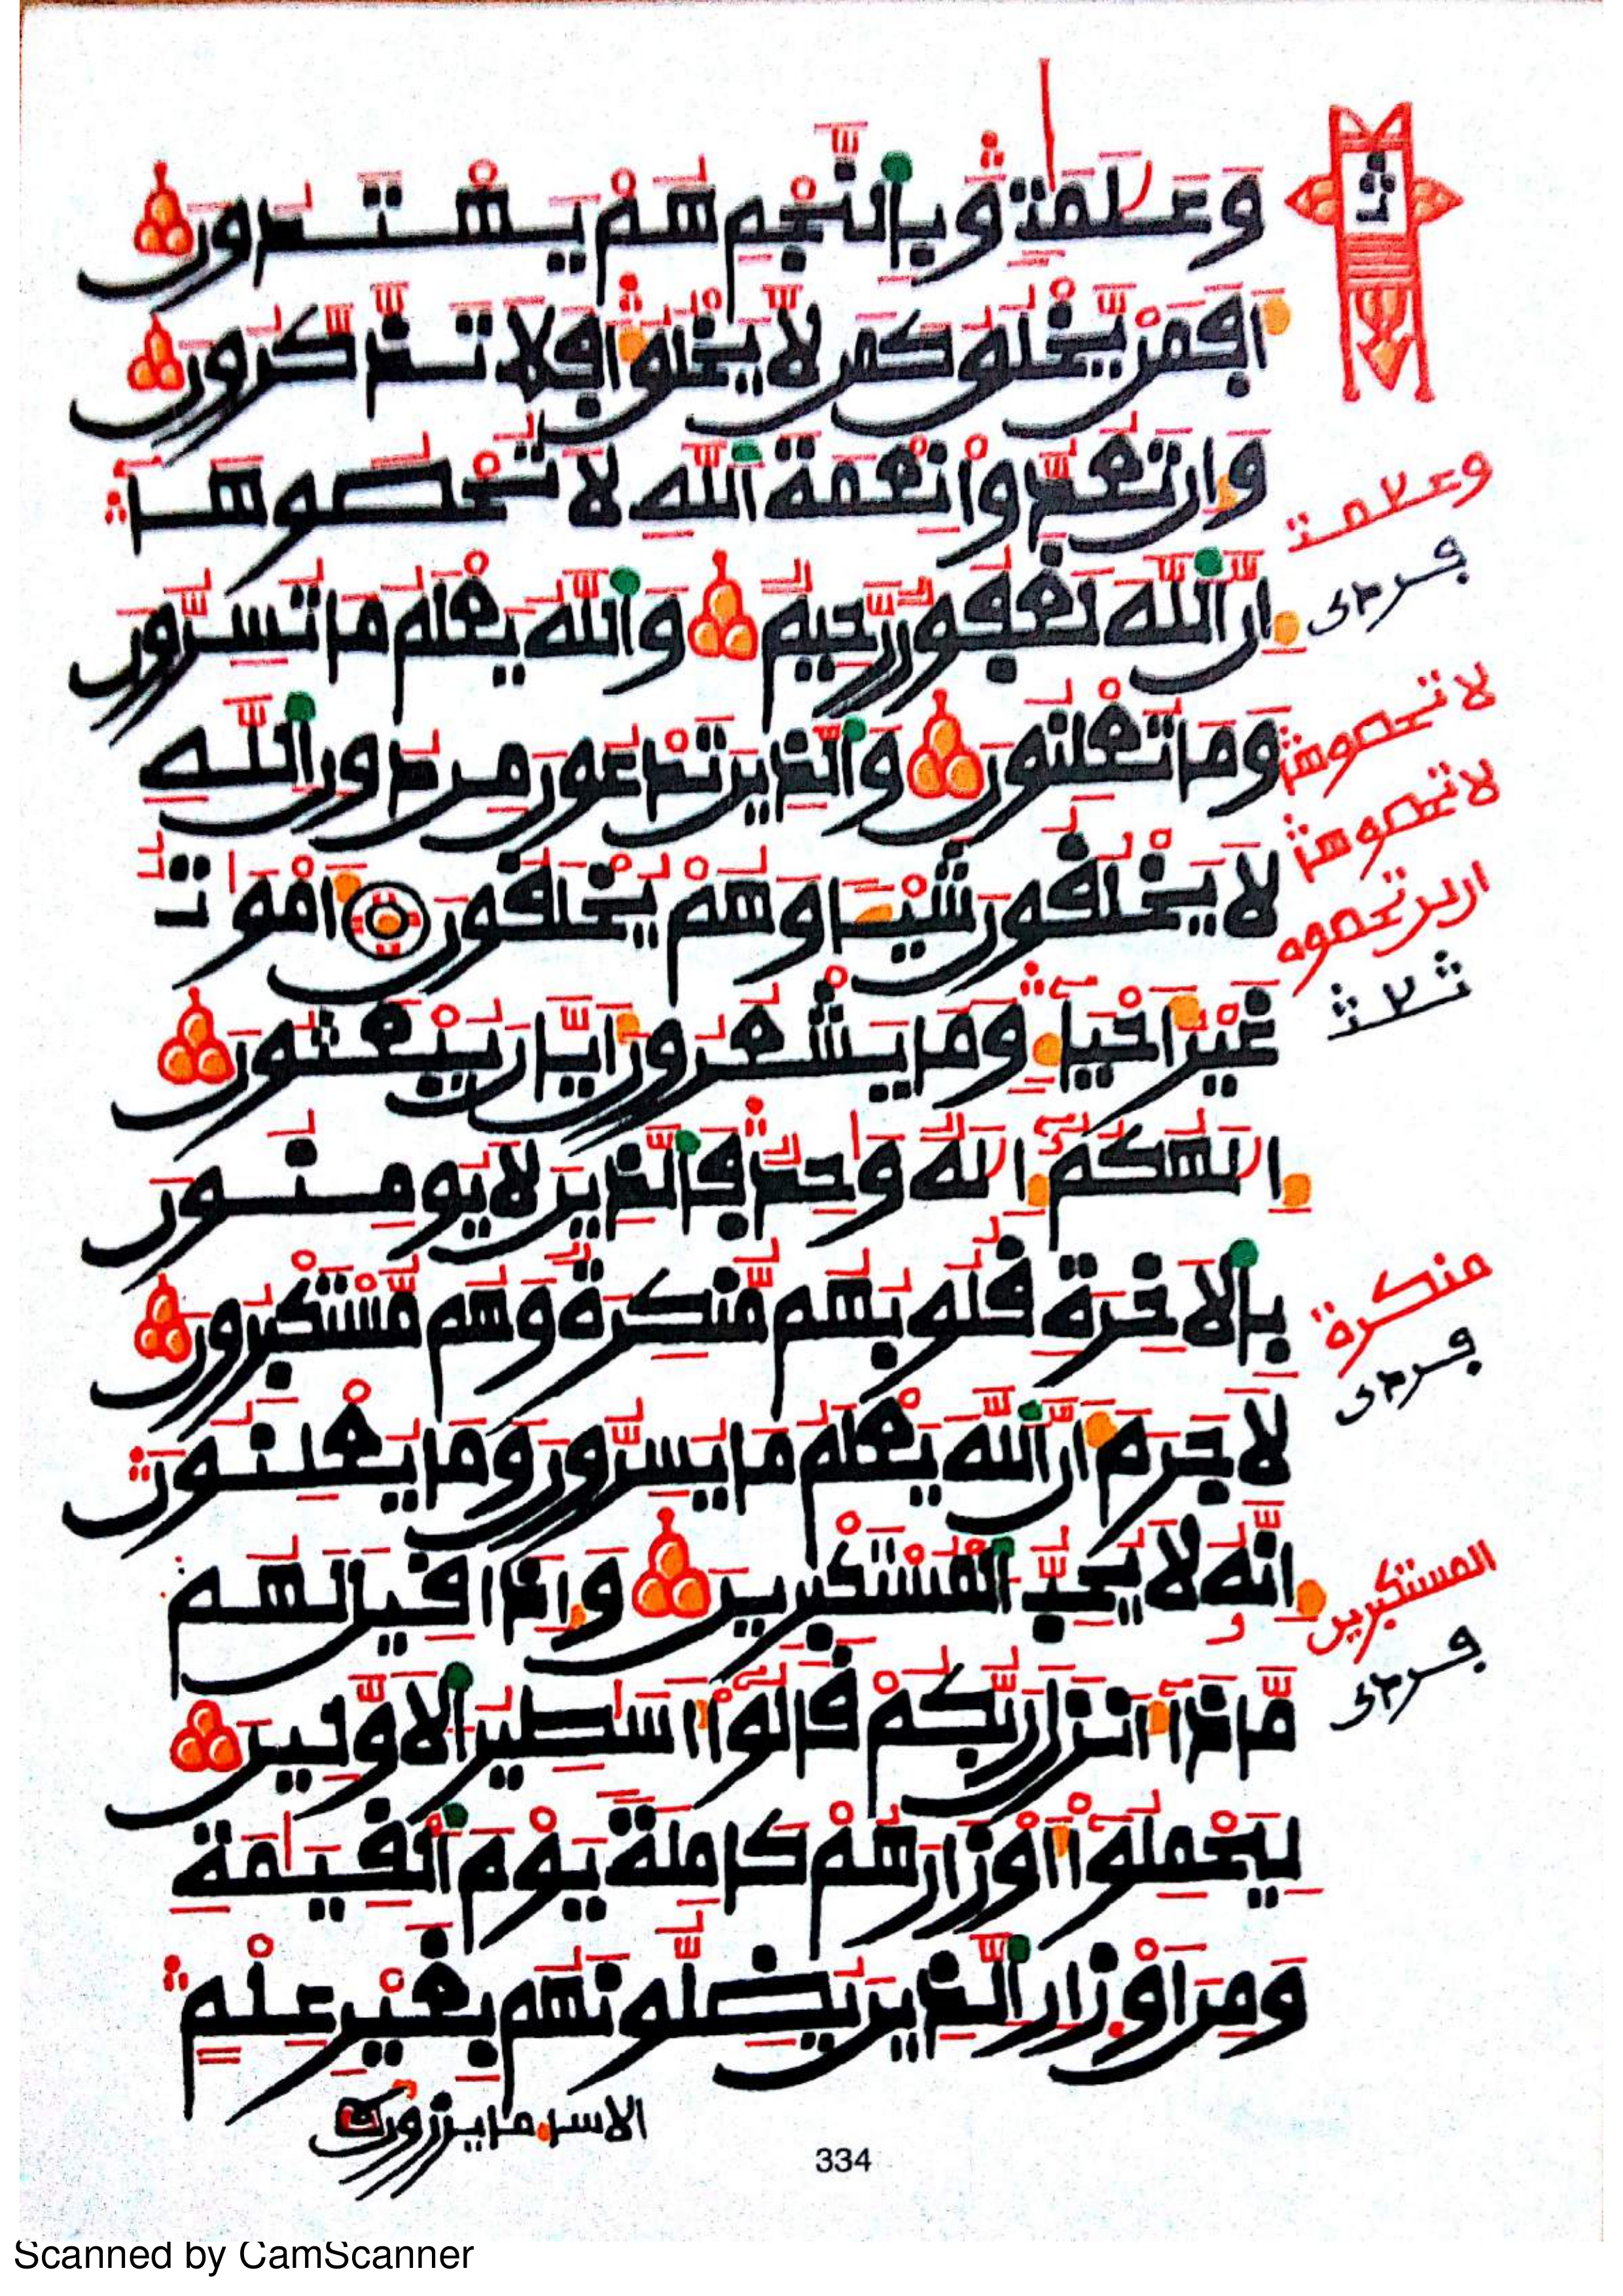 وَعَلَٰمَٰتٖۚ وَبِٱلنَّجۡمِ هُمۡ يَهۡتَدُونَ
أَفَمَنۡ يَّخۡلُقُ كَمَن لَّا يَخۡلُقُۚ أَفَلَا تَذَّكَّرُونَ
وَإِن تَعُدُّواْ نِعۡمَةَ ٱللَّهِ لَا تُحۡصُوهَآۚ
إِنَّ ٱللَّهَ لَغَفُورٞ رَّحِيمٞ وَٱللَّهُ يَعۡلَمُ مَا تُسِرُّونَ
وَمَا تُعۡلِنُونَ وَٱلَّذِينَ تَدۡعُونَ مِن دُونِ ٱللَّهِ
لَا يَخۡلُقُونَ شَيۡـٔٗا وَهُمۡ يُخۡلَقُونَ أَمۡوَٰتٌ
غَيۡرُ أَحۡيَآءٖۚ وَمَا يَشۡعُرُونَ أَيَّانَ يُبۡعَثُونَ
إِلَٰهُكُمُۥٓ إِلَٰهٞ وَٰحِدٞۚ فَٱلَّذِينَ لَا يُومِنُونَ
بِٱلۡأٓخِرَةِ قُلُوبُهُم مُّنكِرَةٞ وَهُم مُّسۡتَكۡبِرُونَ
لَا جَرَمَ أَنَّ ٱللَّهَ يَعۡلَمُ مَا يُسِرُّونَ وَمَا يُعۡلِنُونَۚ
إِنَّهُۥ لَا يُحِبُّ ٱلۡمُسۡتَكۡبِرِينَ وَإِذَا قِيلَ لَهُم
مَّاذَآ أَنزَلَ رَبُّكُمۡ قَالُوٓاْ أَسَٰطِيرُ ٱلۡأَوَّلِينَ
لِيَحۡمِلُوٓاْ أَوۡزَارَهُمۡ كَامِلَةٗ يَوۡمَ ٱلۡقِيَٰمَةِ
وَمِنۡ أَوۡزَارِ ٱلَّذِينَ يُضِلُّونَهُم بِغَيۡرِ عِلۡمٍۚ
الا ساء ما يزرون
334
وعلمت
لا تحصوها
لا تحصوها
ان لن تحصوه
ثلث
منكرة
المستكبرين
Scanned by CamScanner